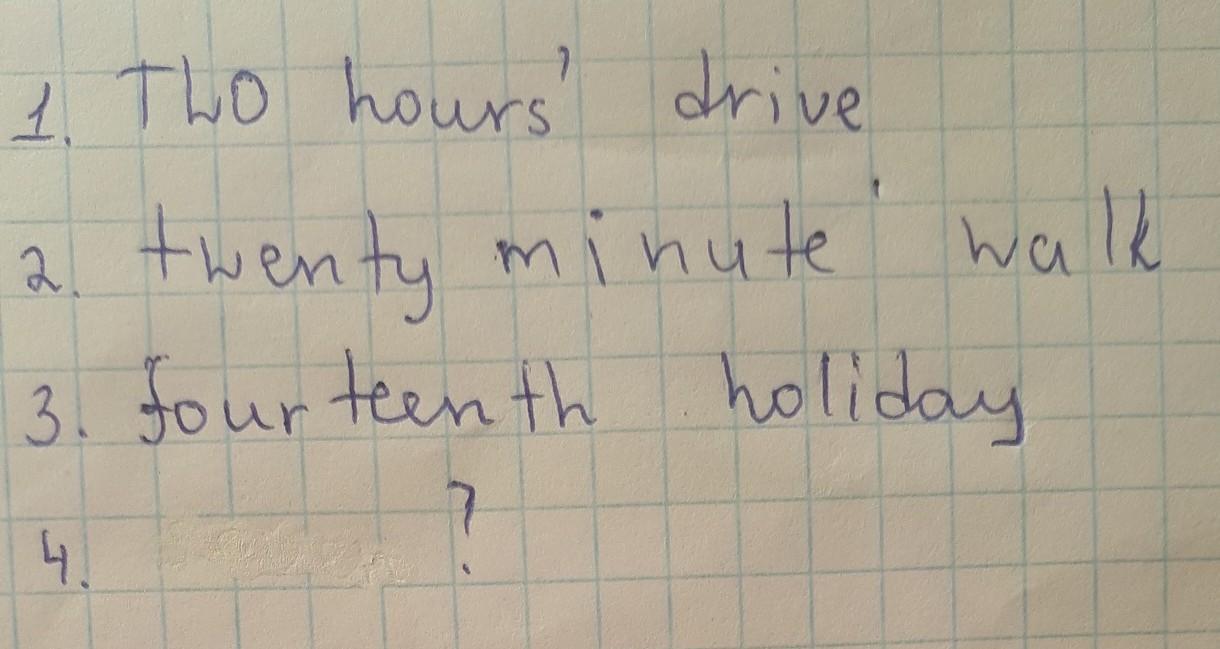 1. Two hours' drive
2. twenty minute walk
3. fourteenth holiday
4. ?